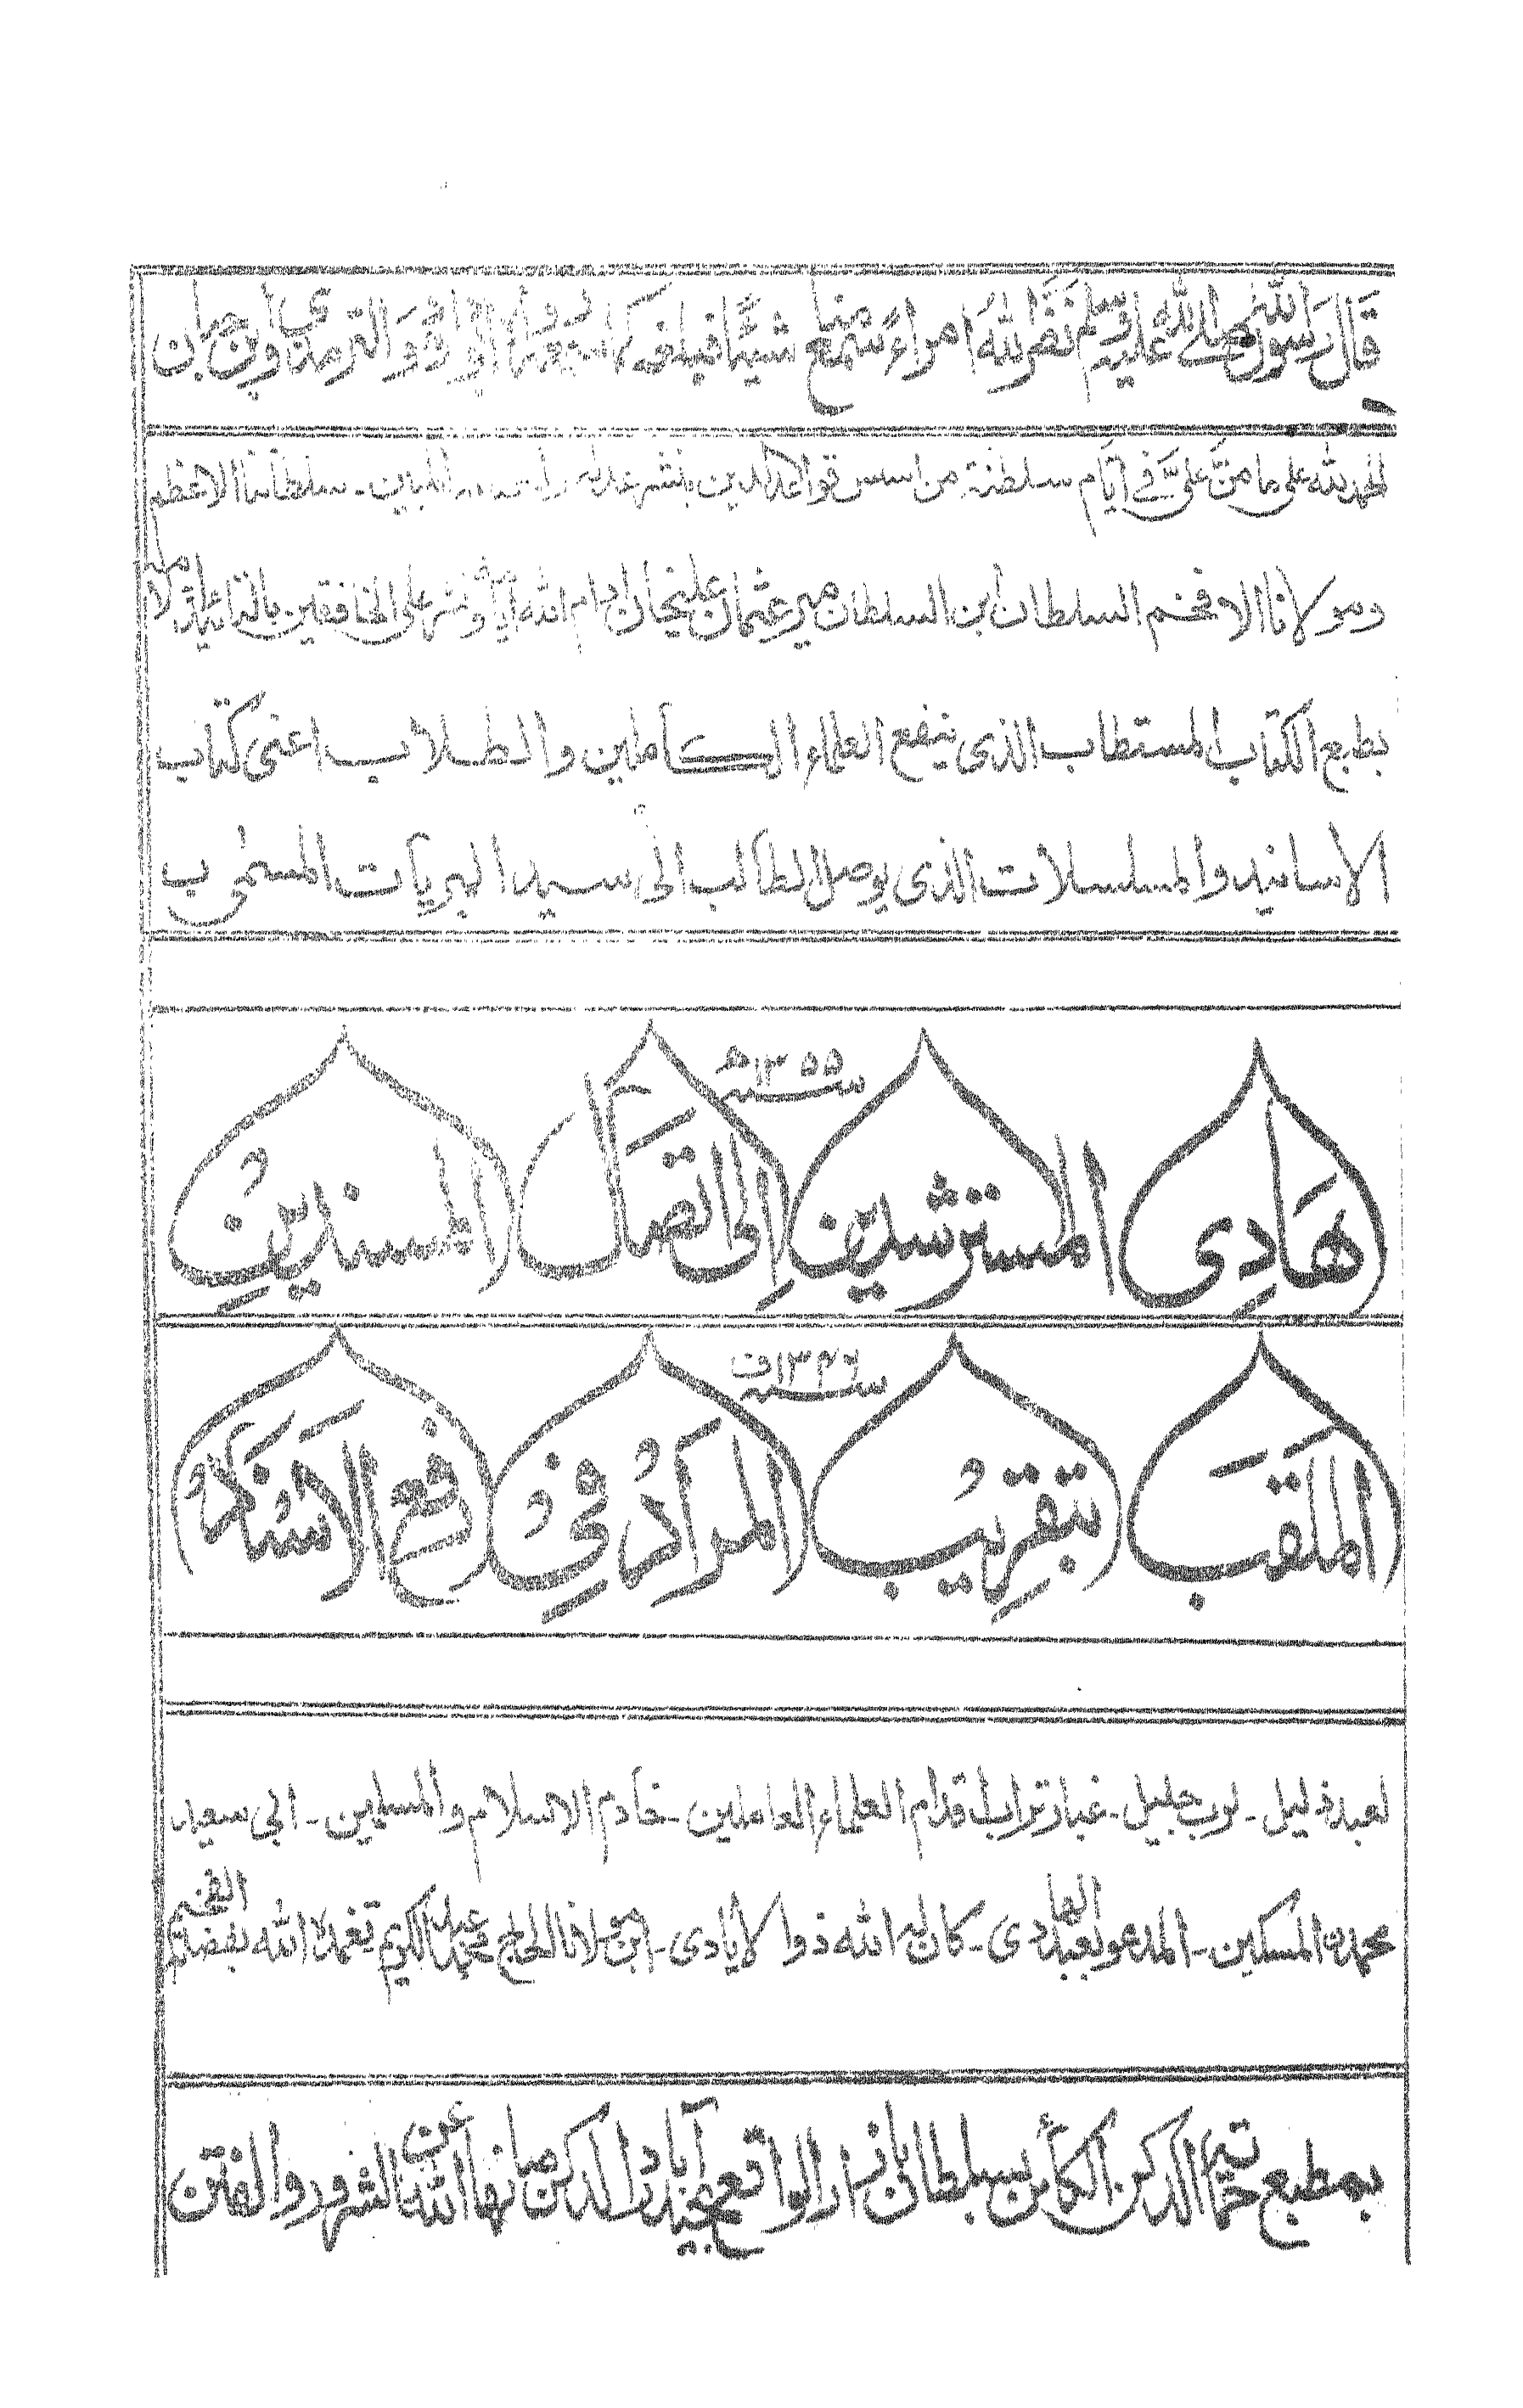 قال رسول الله صلى الله عليه وسلم نضر الله امراء سمع منا شيئا فبلغه كما سمعه والترمذي وابن حبان
الحمد لله على ما من علي في ايام سلطنة من اسس قواعد الدين بنشر المبين ـ سلطاننا الاعظم
ومولانا الافخم السلطان ابن السلطان مير عثمان عليخان ادام الله على الخافقين بالتائيد
بطبع الكتاب المستطاب الذى ينفع العلماء الكاملين والطلاب اعنى كتاب
الاسانيد والمسلسلات الذى يوصل الطالب الى سيد البريات المسمى ب
سنہ ١٣٥٥ھ
هَادِى المسترشدين اِلى اتصَال المسندِيْنِ
سنہ ١٣٤٦ف
الملَقَّب بتقرِيْب المرَادُ فِيْ رفع الاسْنَادْ
لعبد ذليل ـ لرب جليل ـ غبار تراب اقدام العلماء العاملين ـ خادم الاسلام والمسلمين ـ ابى سعيد
محمد المسكين ـ المدعو بعبد الهادى ـ كان له الله ذو الايادى ـ ابن مولانا الحاج محمد عبد الكريم تغمده الله بفضله الفخيم
بمطبع حمايت الدكن الكائن بسلطانى بازار الواقع بحيدرآباد الدكن صانها الله عن الشرور والفتن